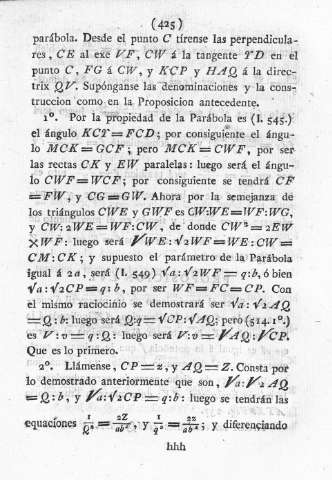 (425)
parábola. Desde el punto C tírense las perpendicula-
res, CE al exe VF, CW á la tangente TD en el
punto C, FG á CW, y KCP y HAQ á la direc-
triz QV. Supónganse las denominaciones y la cons-
truccion como en la Proposicion antecedente.
1º. Por la propiedad de la Parábola es (I. 545.)
el ángulo KCT=FCD; por consiguiente el ángu-
lo MCK=GCF; pero MCK=CWF, por ser
las rectas CK y EW paralelas: luego será el ángu-
lo CWF=WCF; por consiguiente se tendrá CF
=FW, y CG=GW. Ahora por la semejanza de
los triángulos CWE y GWF es CW:WE=WF:WG,
y CW:2WE=WF:CW, de donde CW²=2EW
×WF: luego será √WE:√2WF=WE:CW=
CM:CK; y supuesto el parámetro de la Parábola
igual á 2a, será (I. 549) √a:√2WF=q:b, ó bien
√a:√2CP=q:b, por ser WF=FC=CP. Con
el mismo raciocinio se demostrará ser √a:√2AQ
=Q:b: luego será Q:q=√CP:√AQ; pero (514.1º.)
es V:v=q:Q: luego será V:v=√AQ:√CP.
Que es lo primero.
2º. Llámense, CP=z, y AQ=Z. Consta por
lo demostrado anteriormente que son, √a:√2AQ
=Q:b, y √a:√2CP=q:b: luego se tendrán las
equaciones 1/Q²=2Z/ab², y 1/q²=2z/ab²; y diferenciando
hhh